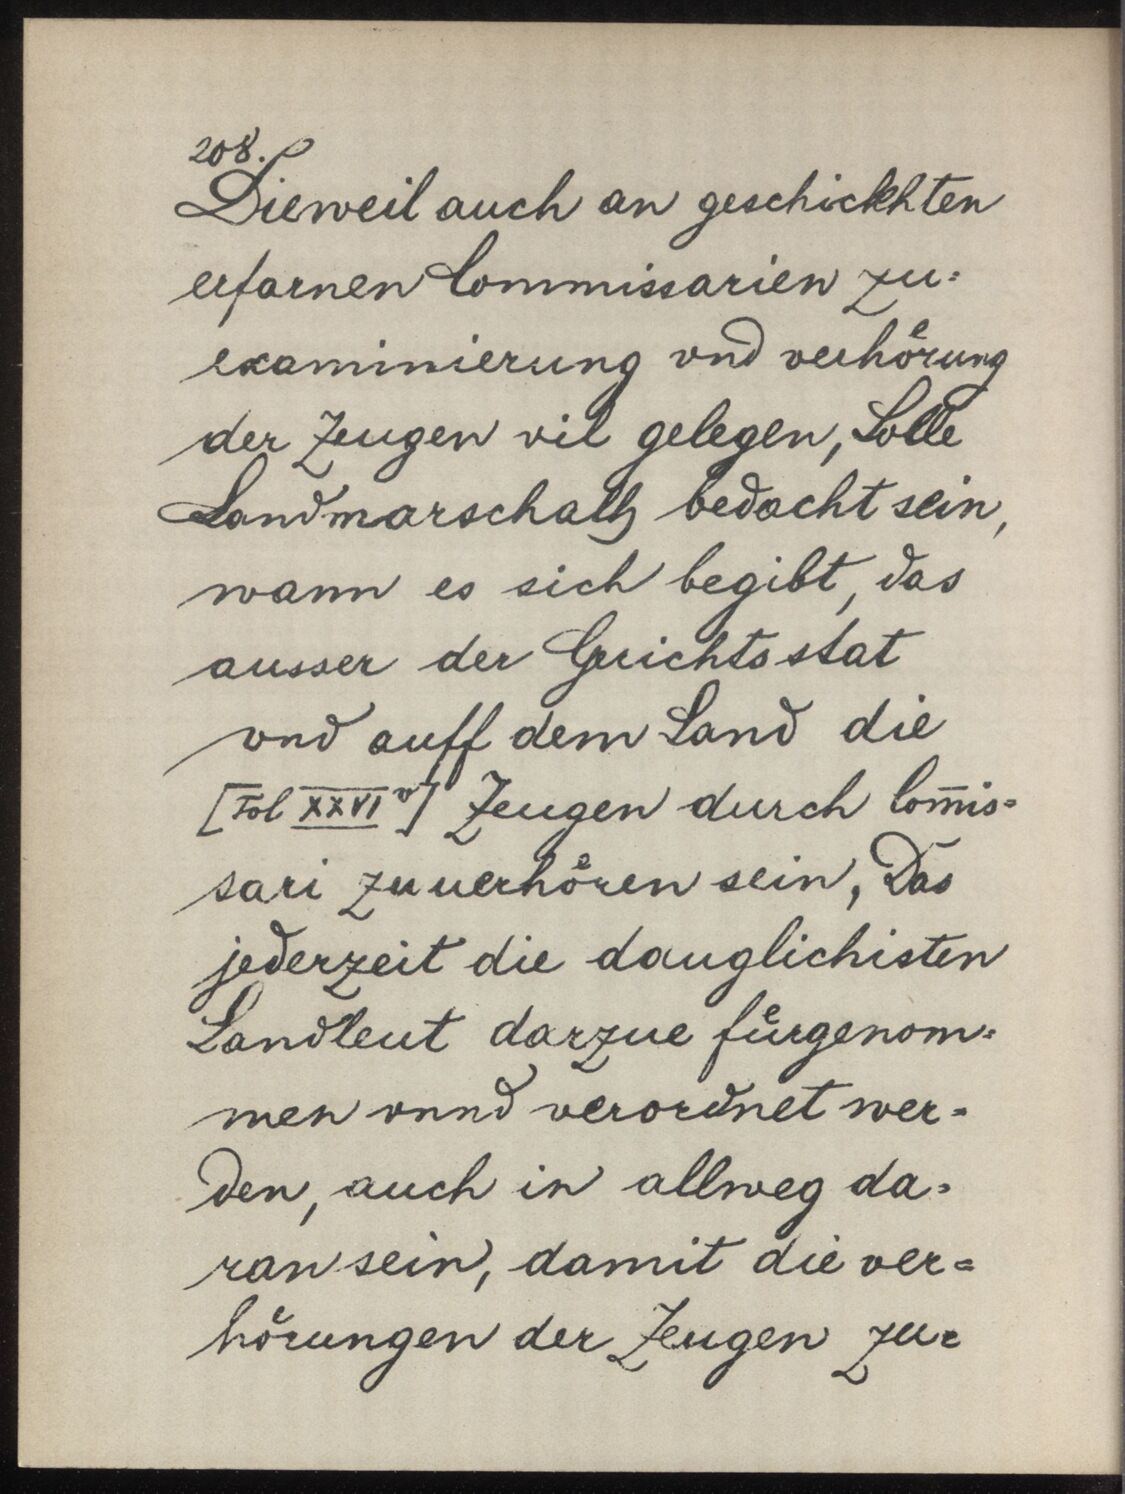 208.
Dieweil auch an geschickhten
erfarnen Commissarien zu=
examinierung vnd verhoͤrung
der Zeugen vil gelegen, Solle
Landmarschalh bedacht sein,
wann es sich begibt, das
ausser der Gerichtsstat
vnd auff dem Land die
[Fol XXVI v] Zeugen durch Com̅is=
sari zuuerhoͤren sein, Das
jederzeit die dauglichisten
Landleut darzue fuͤrgenom=
men vnnd verordnet wer=
den, auch in allweg da=
ran sein, damit die ver=
hoͤrungen der Zeugen zu=